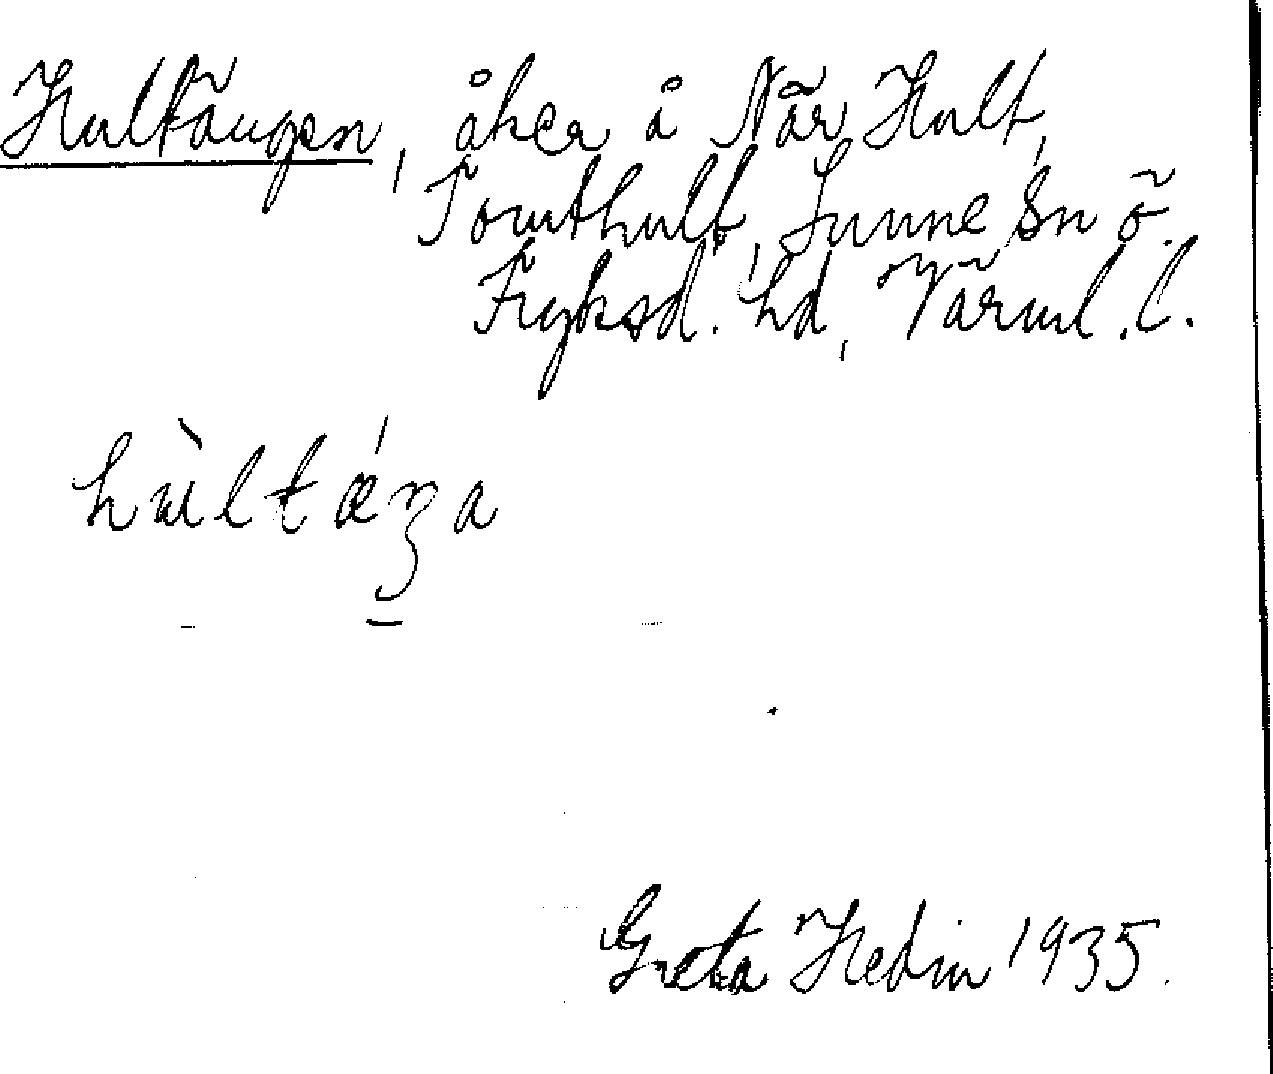 Hultängen, åker å När Hult,
Tomthult, Sunne sn ö.
Fryksd. hd, Värml. l.
hùltǽŋa
Greta Hedin 1935.